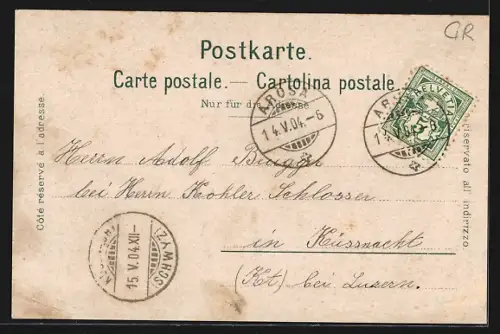 GR
Postkarte.
Carte postale. — Cartolina postale.
Nur für die Adresse
Côté réservé à l'adresse.
riservato all' indirizzo.
AROSA
14.V.04.-6
AROSA
HELVETIA
Herrn Adolf
bei Herrn Kohler Schlosser
in Küssnacht
(Kt) bei Luzern.
15 V.04 XII-
(SCHWYZ)